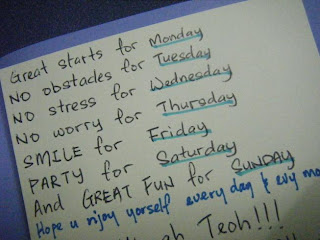 Great starts for Monday
NO obstacles for Tuesday
NO stress for Wednesday
NO worry for Thursday
SMILE for Friday
PARTY for Saturday
And GREAT FUN for SUNDAY
Hope u njoy yorself every day & evy
Teoh!!!